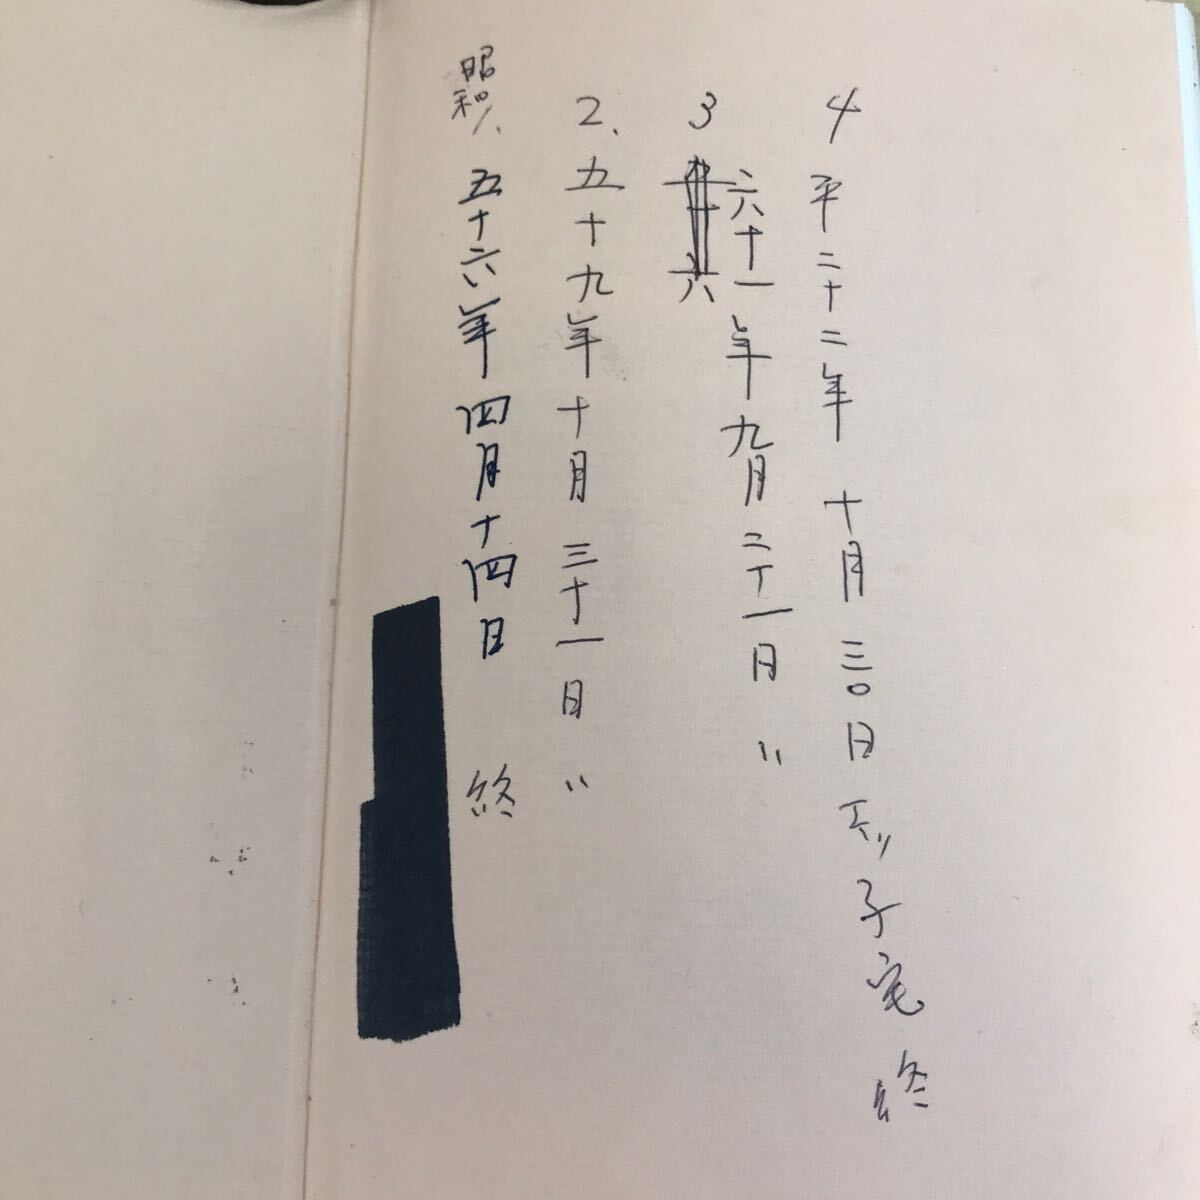 4 平二十二年 十月三〇日 子宅 終
3 六十一年九月二十一日 〃
2、五十九年十月三十一日 〃
昭和1、五十六年四月十四日 終